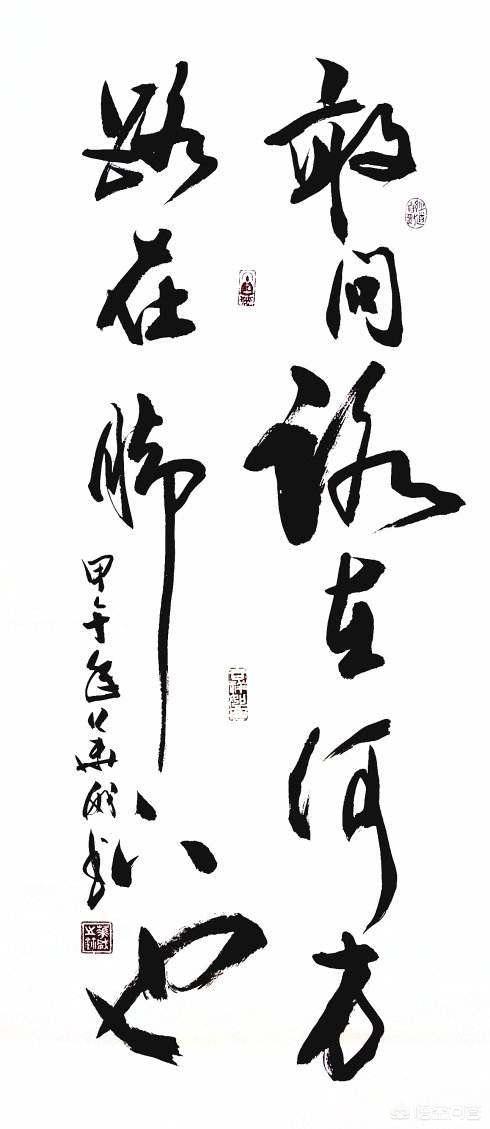 敢问路在何方
路在脚下也
甲午年
悟空问答